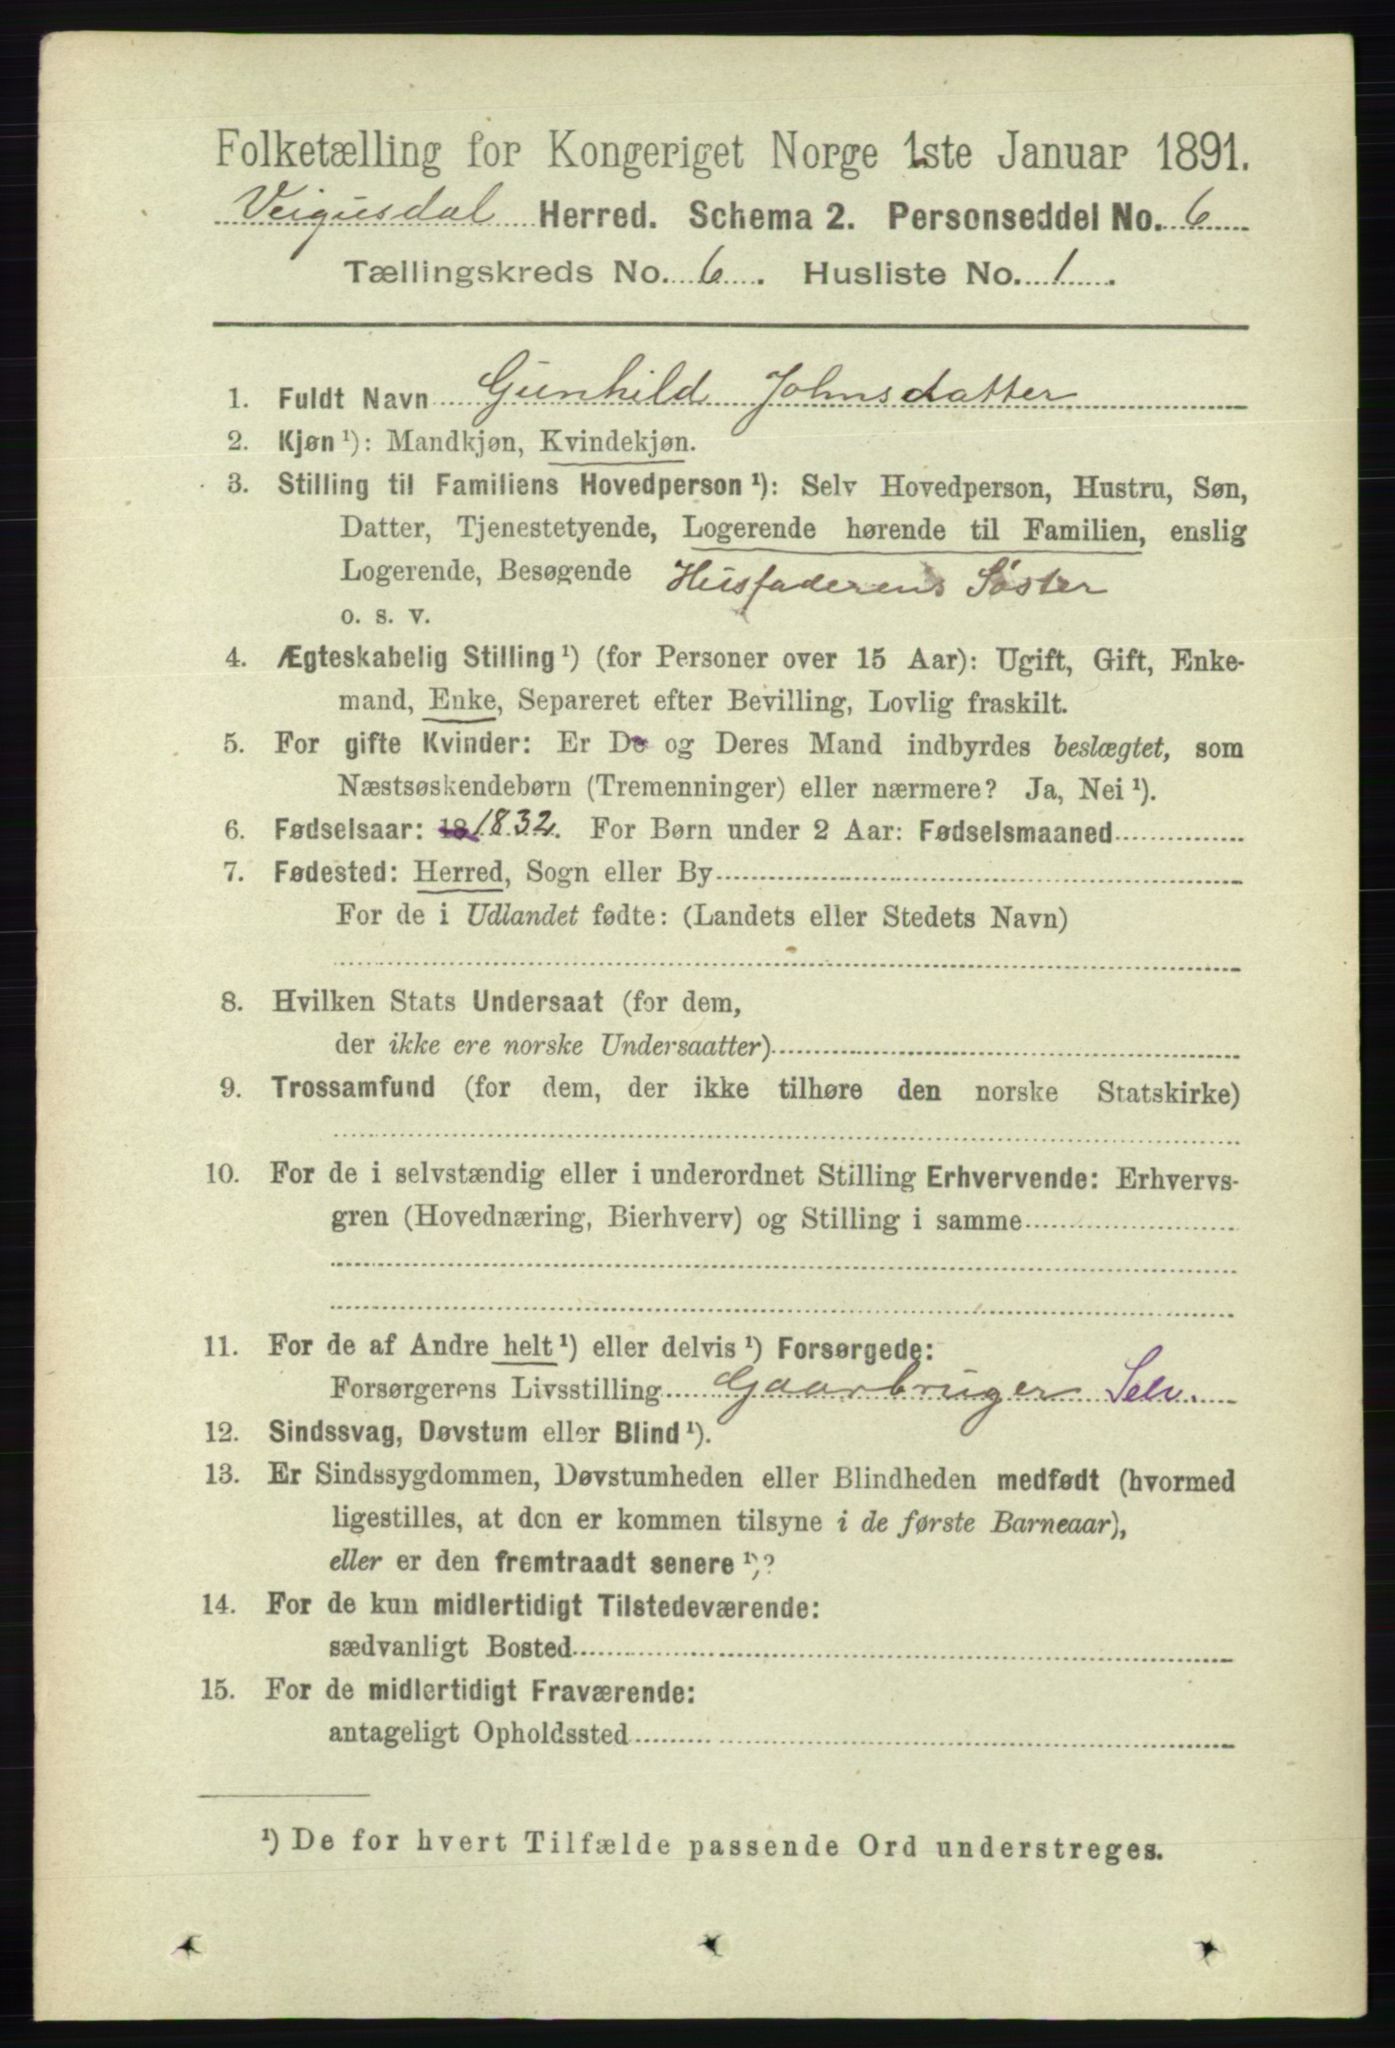 Folketælling for Kongeriget Norge 1ste Januar 1891.
Veigusdal Herred. Schema 2. Personseddel No. 6
Tællingskreds No. 6. Husliste No. 1.
1. Fuldt Navn Gunhild Johnsdatter
2. Kjøn ¹): Mandkjøn, Kvindekjøn.
3. Stilling til Familiens Hovedperson ¹): Selv Hovedperson, Hustru, Søn,
Datter, Tjenestetyende, Logerende hørende til Familien, enslig
Logerende, Besøgende Husfaderens Søster
o. s. v.
4. Ægteskabelig Stilling ¹) (for Personer over 15 Aar): Ugift, Gift, Enke-
mand, Enke, Separeret efter Bevilling, Lovlig fraskilt.
5. For gifte Kvinder: Er De og Deres Mand indbyrdes beslægtet, som
Næstsøskendebørn (Tremenninger) eller nærmere? Ja, Nei ¹).
6. Fødselsaar: 18 1832. For Børn under 2 Aar: Fødselsmaaned
7. Fødested: Herred, Sogn eller By
For de i Udlandet fødte: (Landets eller Stedets Navn)
8. Hvilken Stats Undersaat (for dem,
der ikke ere norske Undersaatter)
9. Trossamfund (for dem, der ikke tilhøre den norske Statskirke)
10. For de i selvstændig eller i underordnet Stilling Erhvervende: Erhvervs-
gren (Hovednæring, Bierhverv) og Stilling i samme
11. For de af Andre helt ¹) eller delvis ¹) Forsørgede:
Forsørgerens Livsstilling Gaarbruger Selv.
12. Sindssvag, Døvstum eller Blind ¹).
13. Er Sindssygdommen, Døvstumheden eller Blindheden medfødt (hvormed
ligestilles, at den er kommen tilsyne i de første Barneaar),
eller er den fremtraadt senere ¹)?
14. For de kun midlertidigt Tilstedeværende:
sædvanligt Bosted
15. For de midlertidigt Fraværende:
antageligt Opholdssted
¹) De for hvert Tilfælde passende Ord understreges.